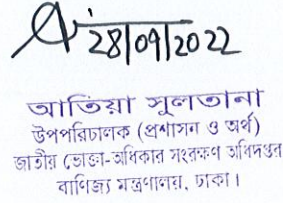 28/09/2022
আতিয়া সুলতানা
উপপরিচালক (প্রশাসন ও অর্থ)
জাতীয় ভোক্তা-অধিকার সংরক্ষণ অধিদপ্তর
বাণিজ্য মন্ত্রণালয়, ঢাকা।